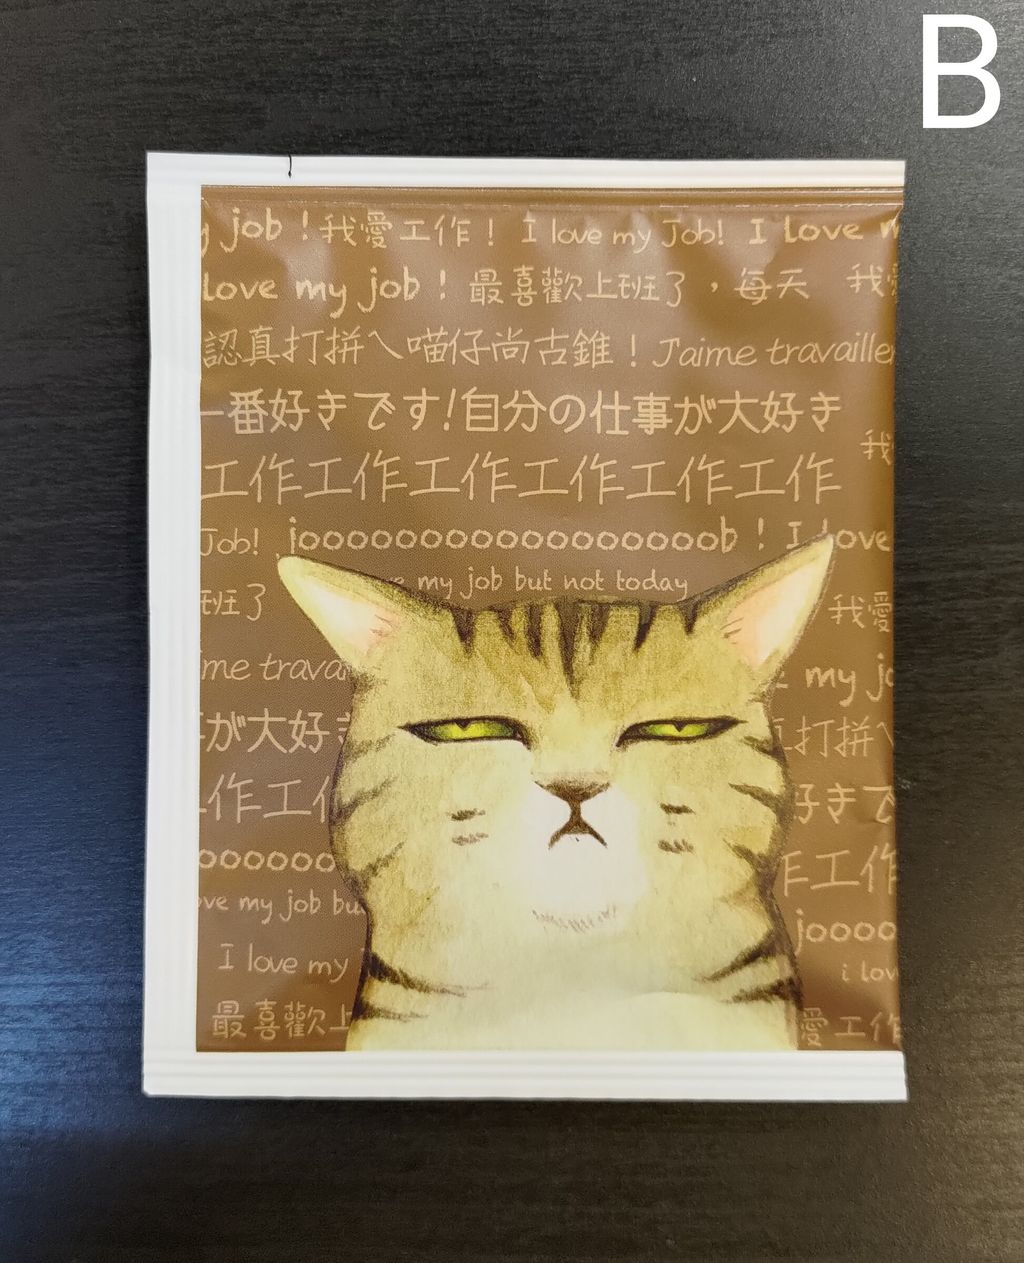 B
y job！我愛工作！ I love my Job! I Love m
love my job！最喜歡上班了，每天 我愛
認真打拼ㄟ喵仔尚古錐！J'aime travailler
一番好きです!自分の仕事が大好き
我
工作工作工作工作工作工作
Job! joooooooooooooooooob！I love
my job but not today
班了
我愛
ime trava
my jo
が大好き
打拼ㄟ
作工作
好きで
oooooo
作工作
ove my job bu
joooo
I love my
i lov
最喜歡上
愛工作